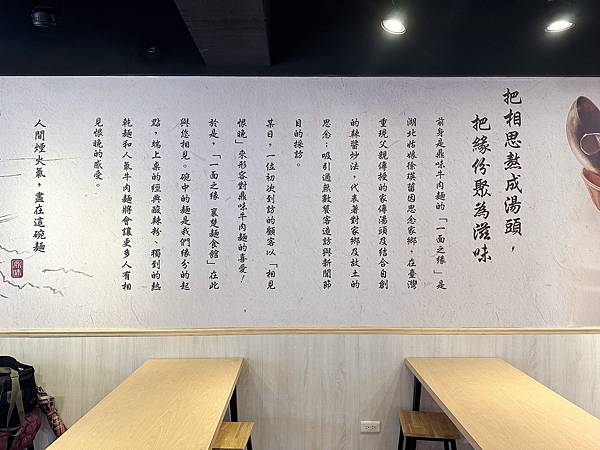 把相思熬成湯頭，
把緣份聚為滋味
前身是鼎味牛肉麵的「一面之緣」是
湖北姑娘徐瑛苗因思念家鄉，在臺灣
重現父親傳授的家傳湯頭及結合自創
的辣醬炒法，代表著對家鄉及故土的
思念；吸引過無數饕客造訪與新聞節
目的採訪。
某日，一位初次到訪的顧客以「相見
恨晚」來形容對鼎味牛肉麵的喜愛！
於是，「一面之緣 襄楚麵食館」在此
與您相見。碗中的麵是我們緣分的起
點，端上桌的經典酸辣粉、獨到的熱
乾麵和人氣牛肉麵將會讓更多人有相
見恨晚的感受。
人間煙火氣，盡在這碗麵